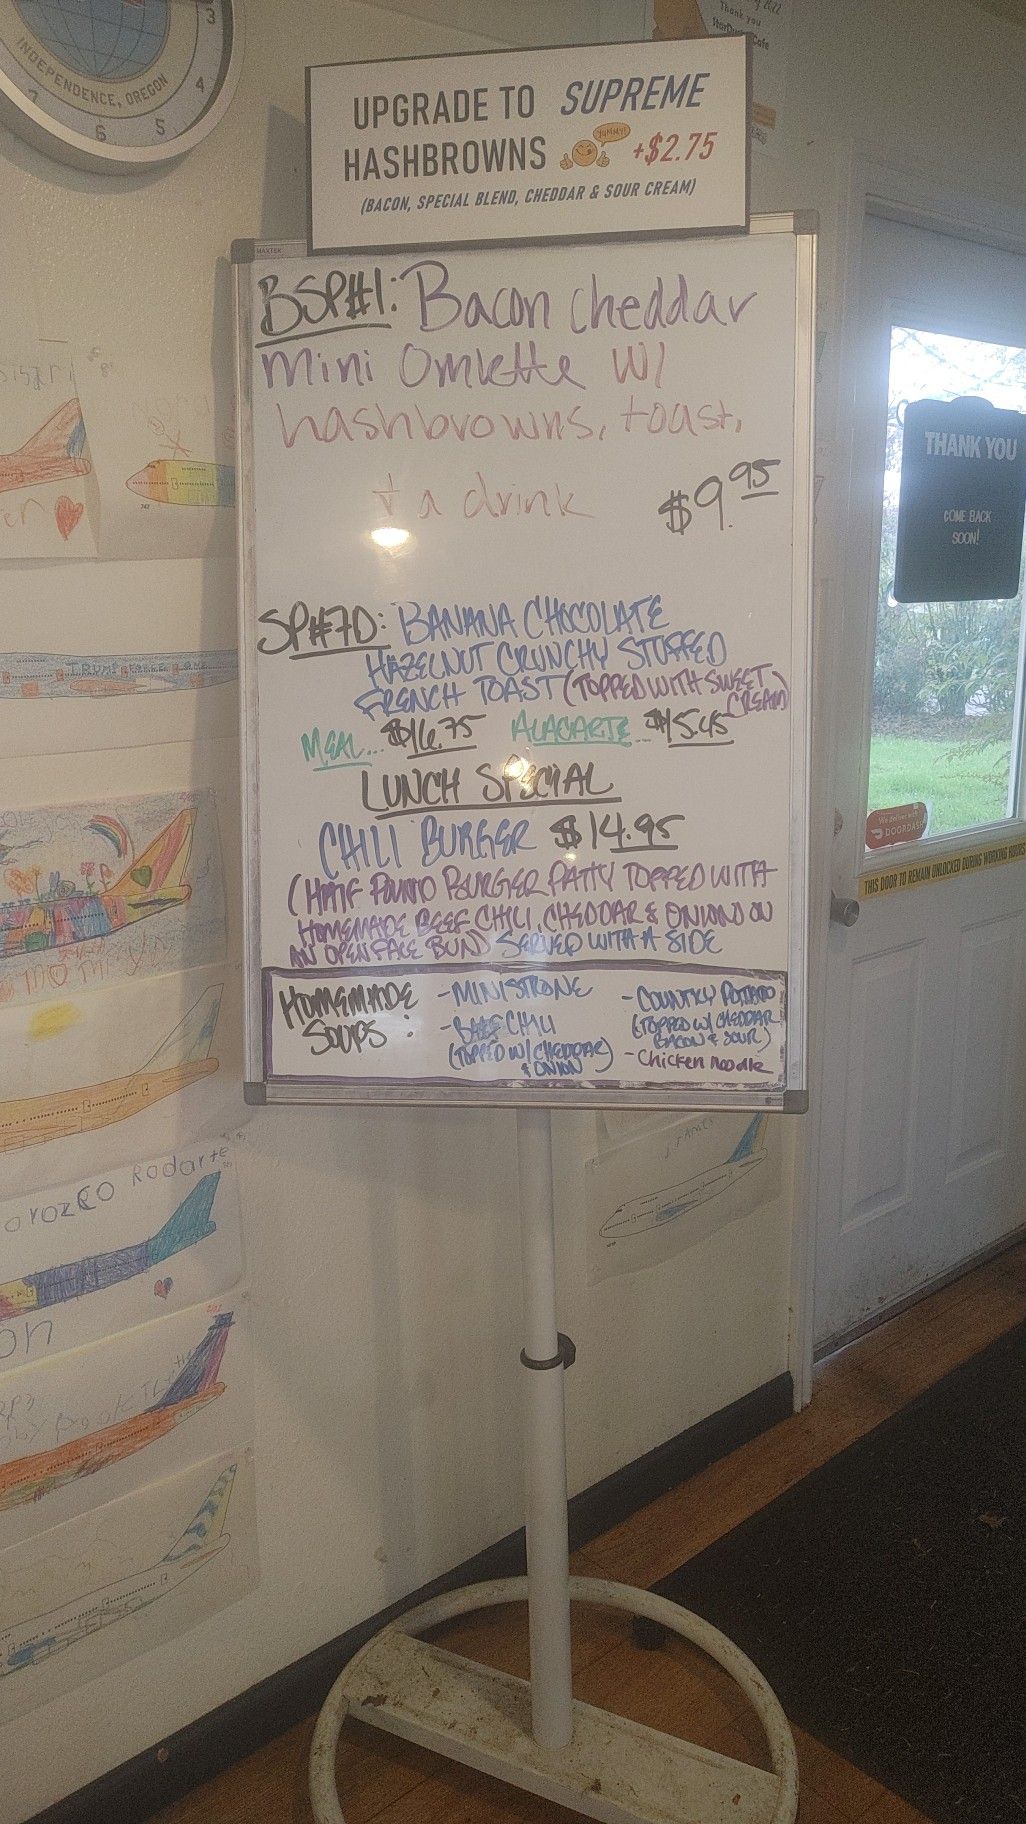 INDEPENDENCE, OREGON
3
4
5
6
7
Thank you
UPGRADE TO SUPREME
HASHBROWNS YUMMY! +$2.75
(BACON, SPECIAL BLEND, CHEDDAR & SOUR CREAM)
BSP#1: Bacon cheddar
mini Omlette w/
hashbrowns, toast,
+ a drink $9.95
SP#7D: BANANA CHOCOLATE
HAZELNUT CRUNCHY STUFFED
FRENCH TOAST (TOPPED WITH SWEET
CREAM)
MEAL... $16.75 ALACARTE... $15.45
LUNCH SPECIAL
CHILI BURGER $14.95
(HALF POUND BURGER PATTY TOPPED WITH
HOMEMADE BEEF CHILI, CHEDDAR & ONION ON
AN OPEN FACE BUN) SERVED WITH A SIDE
HOMEMADE
SOUPS:
- MINISTRONE
- BEEF CHILI
(TOPPED W/ CHEDDAR
& ONION)
- COUNTRY POTATO
(TOPPED W/ CHEDDAR
BACON & SOUR)
- Chicken noodle
THANK YOU
COME BACK
SOON!
We deliver with
DOORDASH
THIS DOOR TO REMAIN UNLOCKED DURING WORKING HOURS
Rodarte